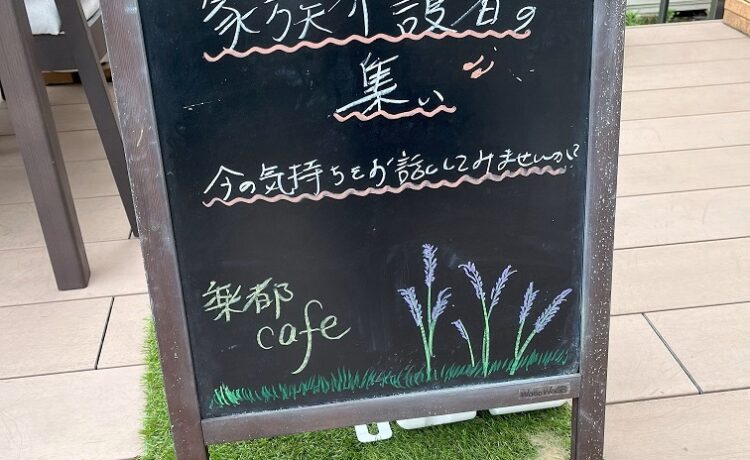 家族介護者の
集い
今の気持ちをお話ししてみませんか?
楽都
cafe